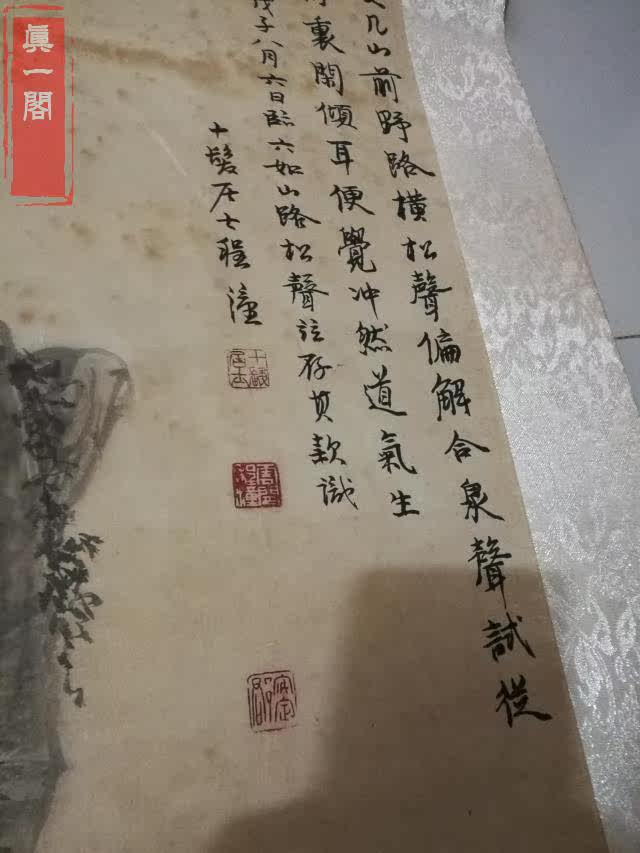 几山前野路横松聲偏解合泉聲試從
裏閑傾耳便覺冲然道氣生
戊子八月六日臨六如山路松聲並存其款識
十髪居士程潼
真一閣